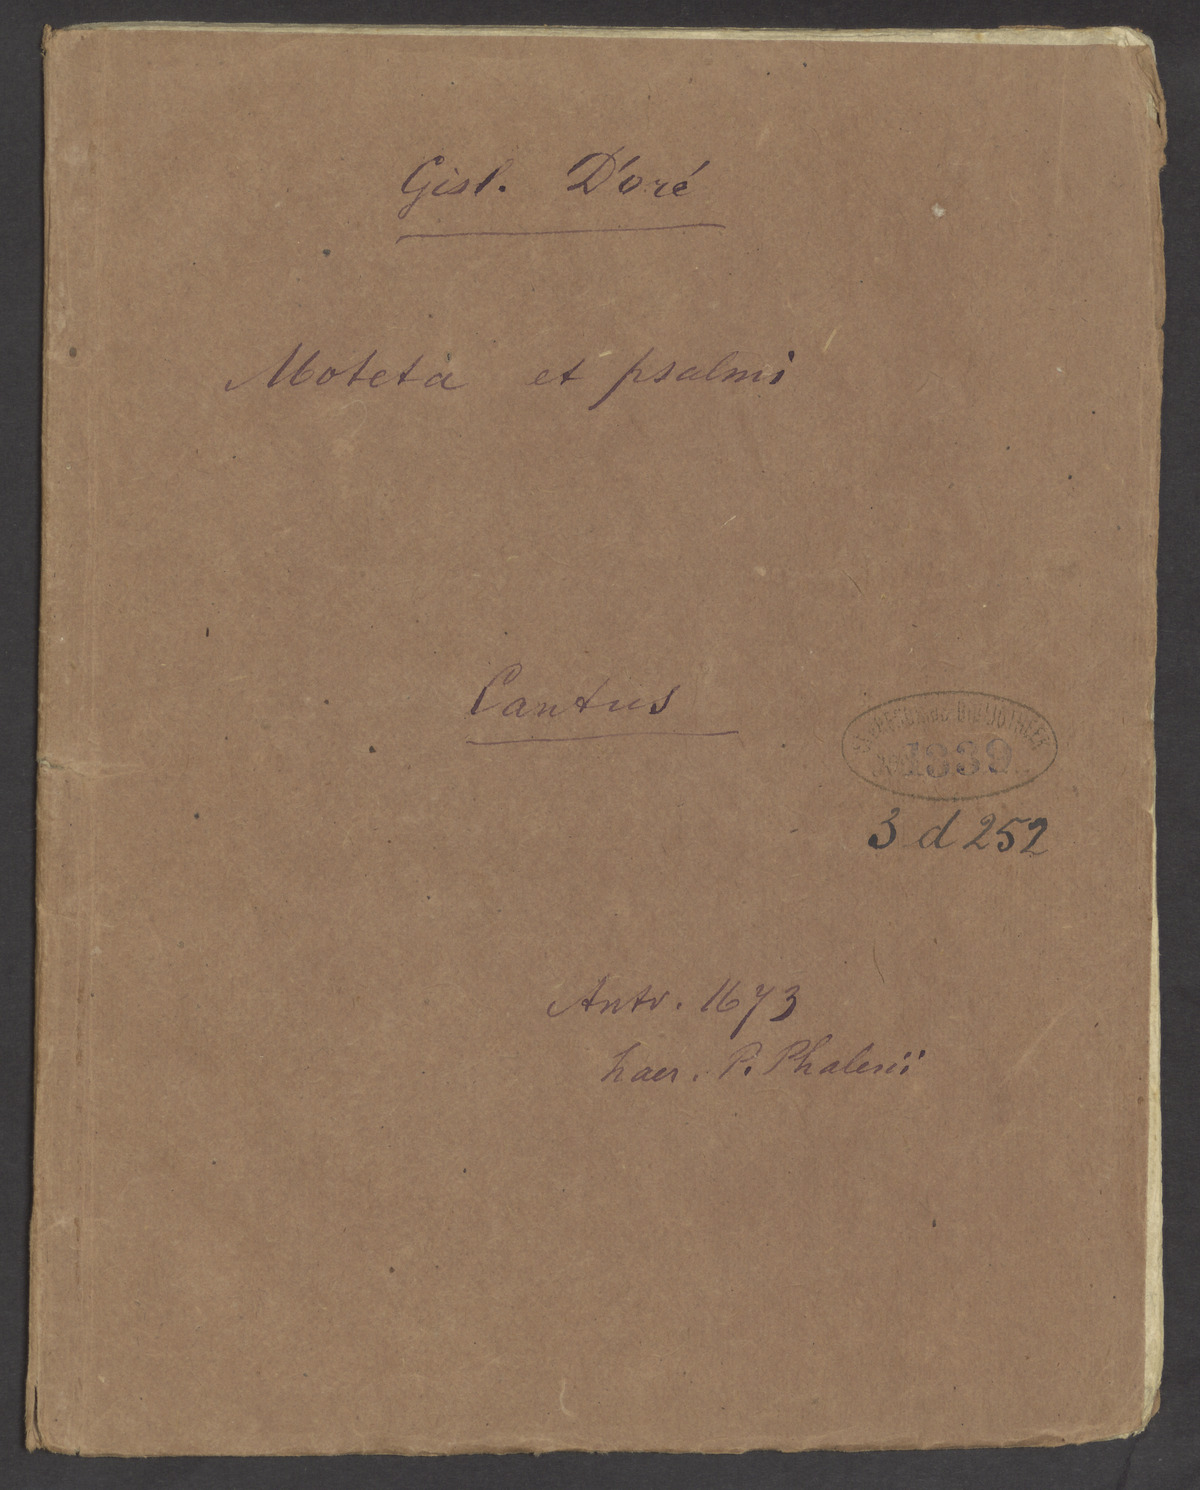 Gisl. D'oré
Moteta et psalmi
Cantus
1939
3 d 252
Antv. 1673
haer. P. Phalesii